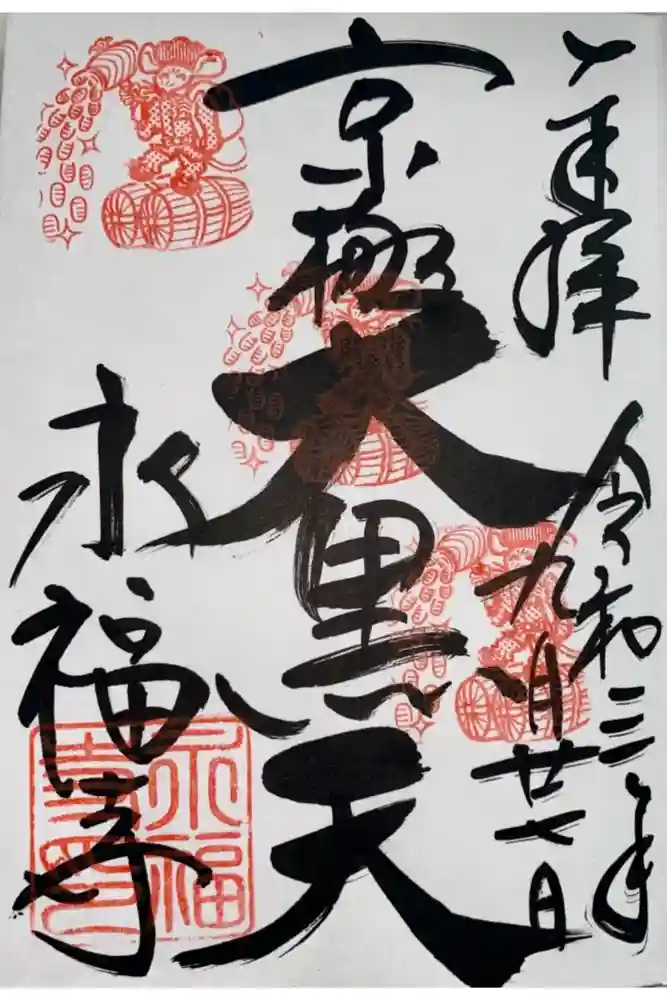 奉拝
令和三年
九月廿七日
京極
大黒天
永福寺
永福寺印